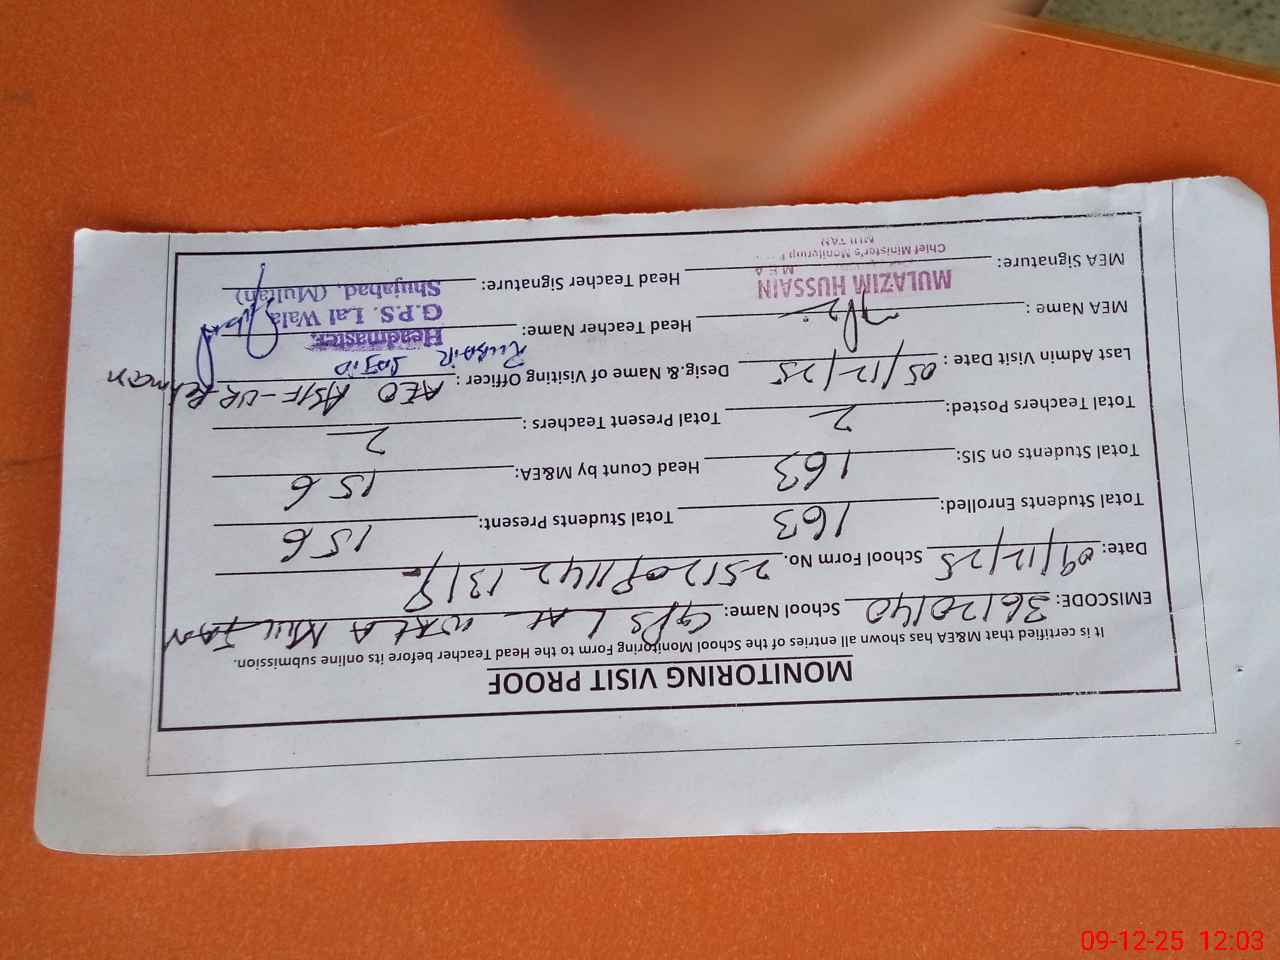 MONITORING VISIT PROOF
It is certified that M&EA has shown all entries of the School Monitoring Form to the Head Teacher before its online submission.
EMISCODE: 36120140 School Name: GPS LAL WALA MULTAN
Date: 09/12/25 School Form No.
Total Students Enrolled: 163 Total Students Present: 156
Total Students on SIS: 163 Head Count by M&EA: 156
Total Teachers Posted: 2 Total Present Teachers : 2
Last Admin Visit Date : 05/12/25 Desig.& Name of Visiting Officer : AEO ASIF-UR-Rehman
MEA Name : Head Teacher Name:
MULAZIM HUSSAIN
M E A
Chief Minister's Monitoring
MULTAN
MEA Signature: Head Teacher Signature:
Headmaster
G.P.S. Lal Wala
Shujabad. (Multan)
09-12-25 12:03